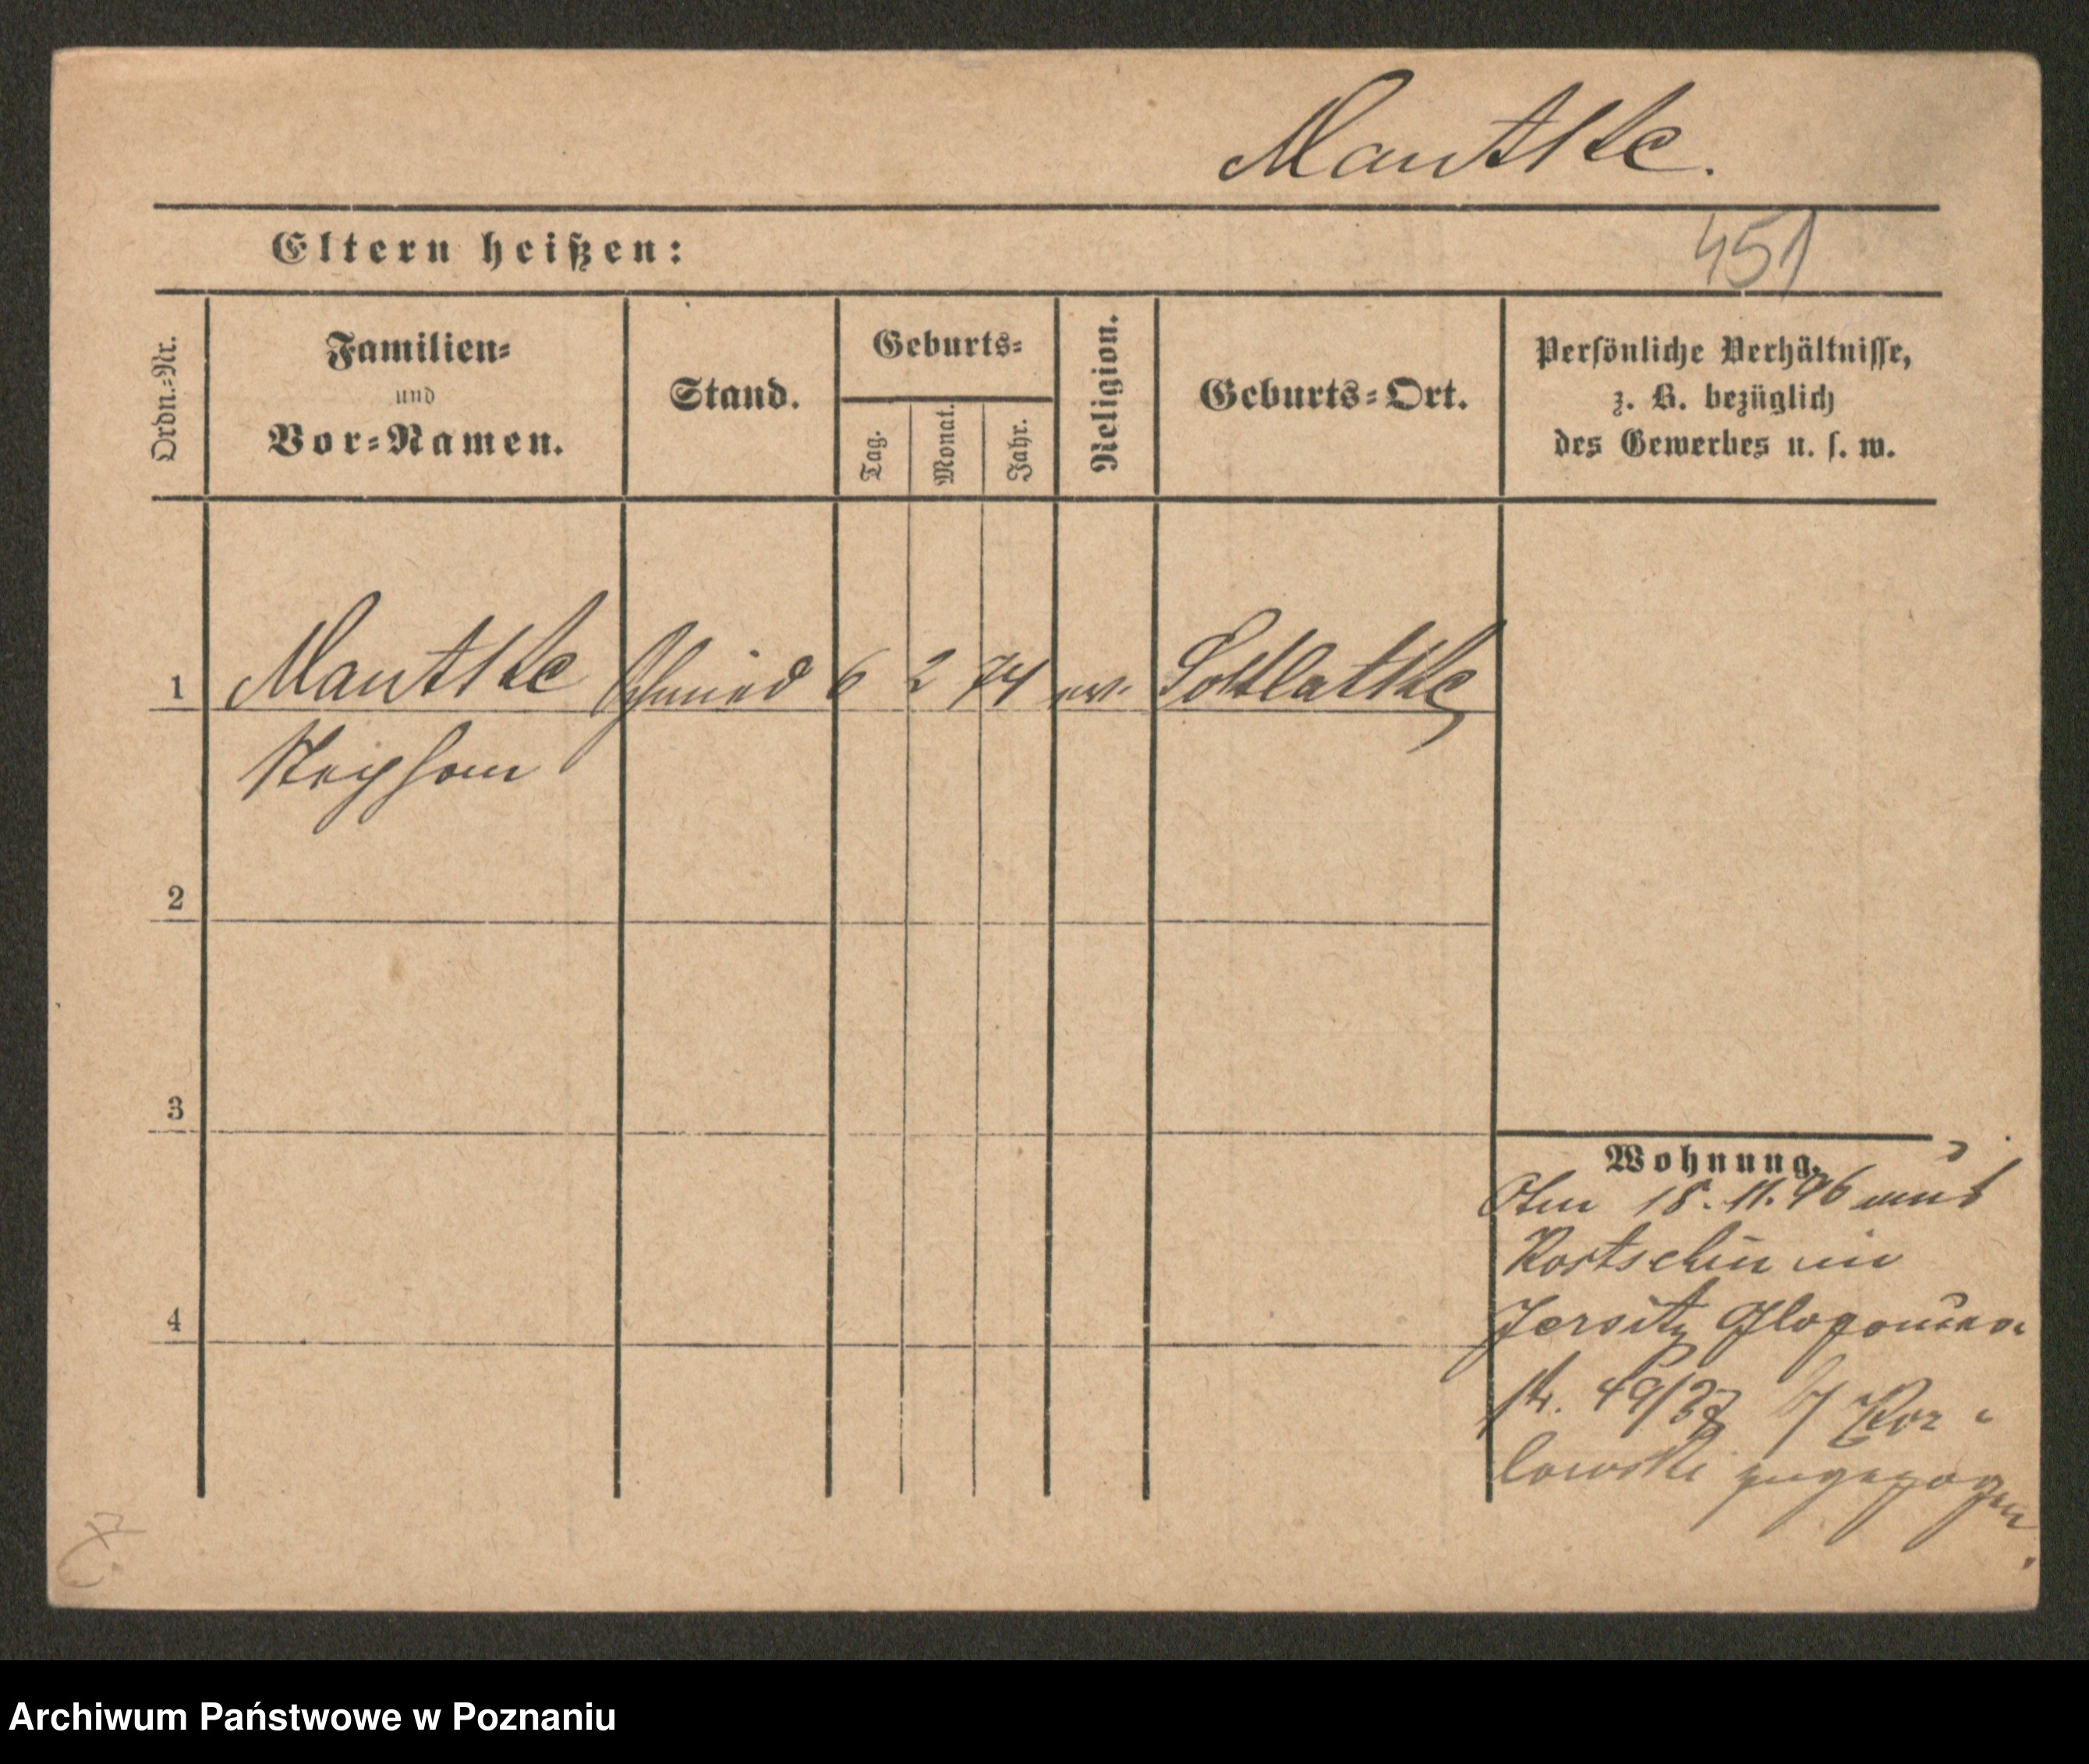 Mantke.
Eltern heißen:
451
Ordn.=Nr.
Familien=
und
Vor=Namen.
Stand.
Geburts=
Tag.
Monat.
Jahr.
Religion.
Geburts=Ort.
Persönliche Verhältnisse,
z. B. bezüglich
des Gewerbes u. s. w.
1 Mantke Schmied 6 2 74 ev.
Stephan
2
3
4
Wohnung.
Am 18. 11. 96 aus
Kostschin in
Jersitz Glogauer
str. 49/37 b/ Kor-
lowski zugezogen.
Archiwum Państwowe w Poznaniu